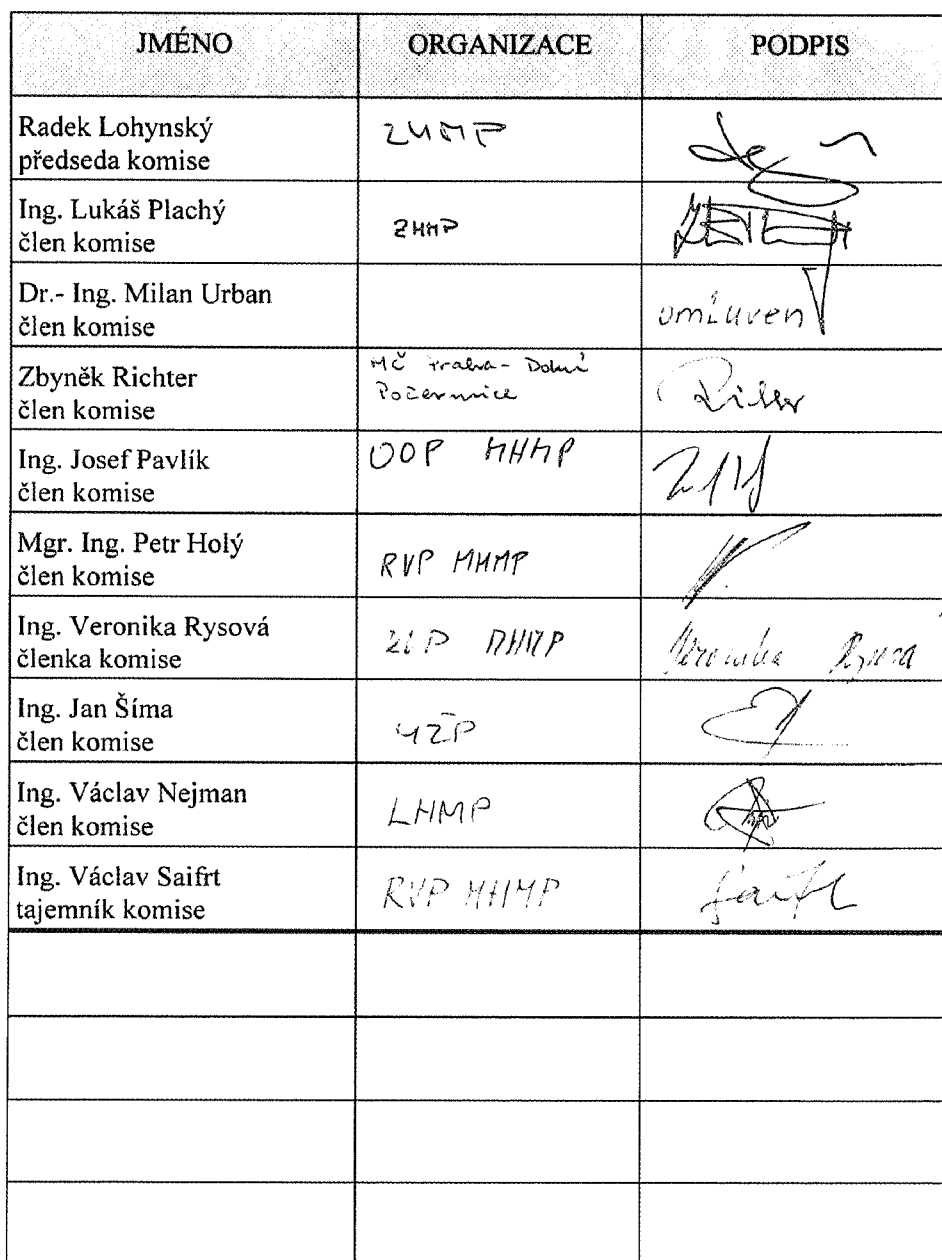 JMÉNO ORGANIZACE PODPIS
Radek Lohynský ZHMP
předseda komise
Ing. Lukáš Plachý
člen komise ZHMP
Dr.- Ing. Milan Urban
člen komise omluven
Zbyněk Richter MČ Praha - Dolní
člen komise Počernice
Ing. Josef Pavlík OOP MHMP
člen komise
Mgr. Ing. Petr Holý
člen komise RVP MHMP
Ing. Veronika Rysová
členka komise MHMP Veronika Rysová
Ing. Jan Šíma
člen komise
Ing. Václav Nejman
člen komise LHMP
Ing. Václav Saifrt
tajemník komise RVP MHMP Saifrt